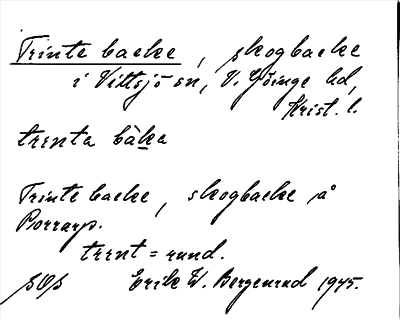 Trinte backe, skogbacke
i Vittsjö sn, V. Göinge hd,
Krist. l.
trenta bàka
Trinte backe, skogbacke på
Porrarp.
trent = rund.
Erik W. Bergenrud 1945.